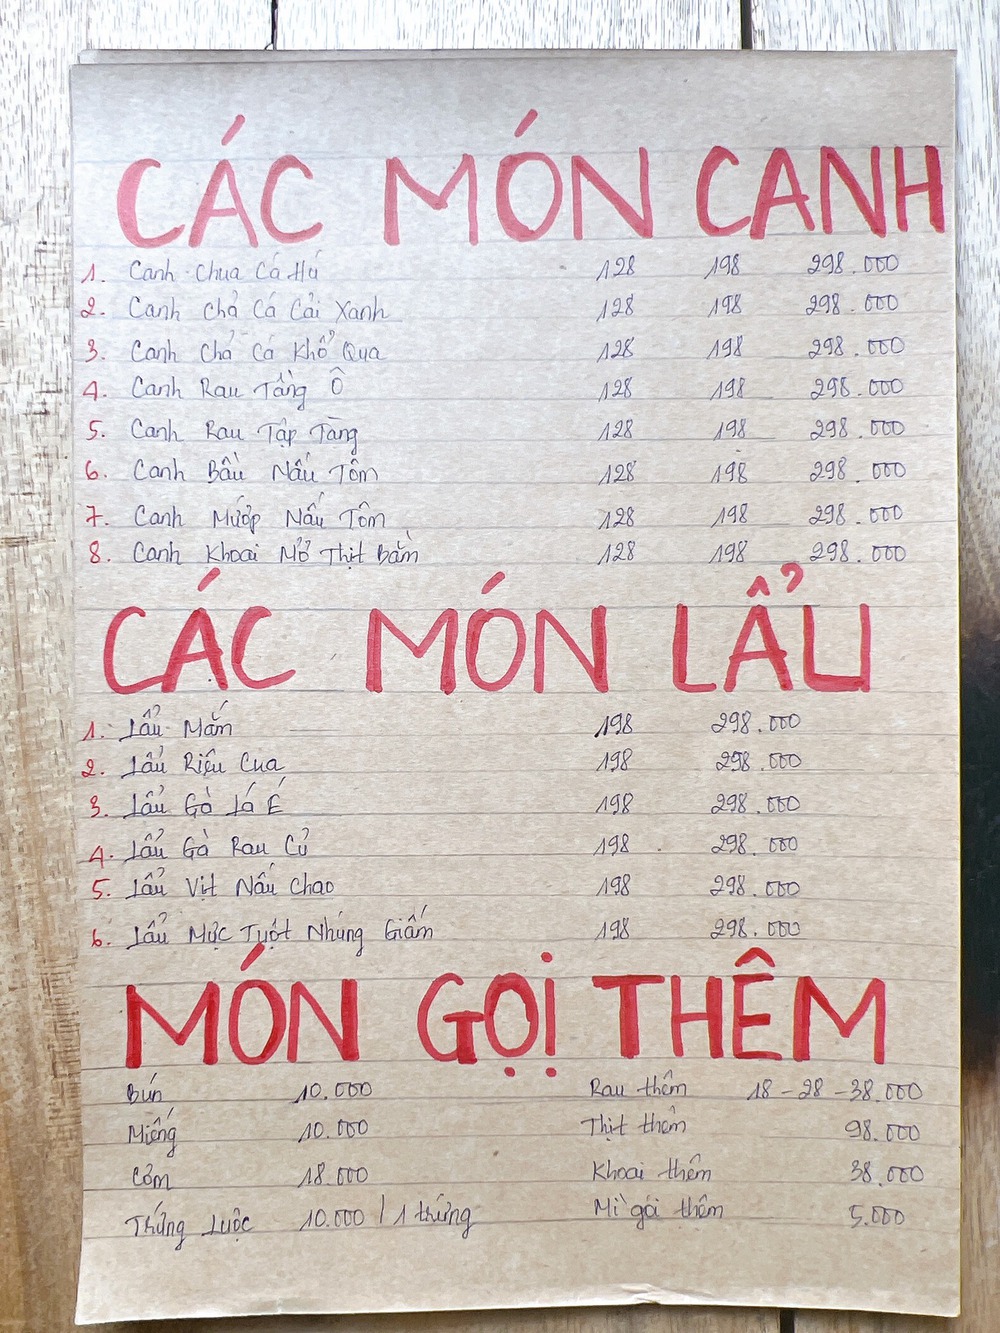 CÁC MÓN CANH
1. Canh Chua Cá Hú 128 198 298.000
2. Canh Chả Cá Cải Xanh 128 198 298.000
3. Canh Chả Cá Khổ Qua 128 198 298.000
4. Canh Rau Tầng Ô 128 198 298.000
5. Canh Rau Tập Tàng 128 198 298.000
6. Canh Bầu Nấu Tôm 128 198 298.000
7. Canh Mướp Nấu Tôm 128 198 298.000
8. Canh Khoai Mỡ Thịt Bằm 128 198 298.000
CÁC MÓN LẨU
1. Lẩu Mắm 198 298.000
2. Lẩu Riêu Cua 198 298.000
3. Lẩu Gà Lá É 198 298.000
4. Lẩu Gà Rau Củ 198 298.000
5. Lẩu Vịt Nấu Chao 198 298.000
6. Lẩu Mực Tuột Nhúng Giấm 198 298.000
MÓN GỌI THÊM
Bún 10.000 Rau thêm 18 - 28 - 38.000
Miếng 10.000 Thịt thêm 98.000
Cơm 18.000 Khoai thêm 38.000
Trứng Luộc 10.000 / 1 trứng Mì gói thêm 5.000